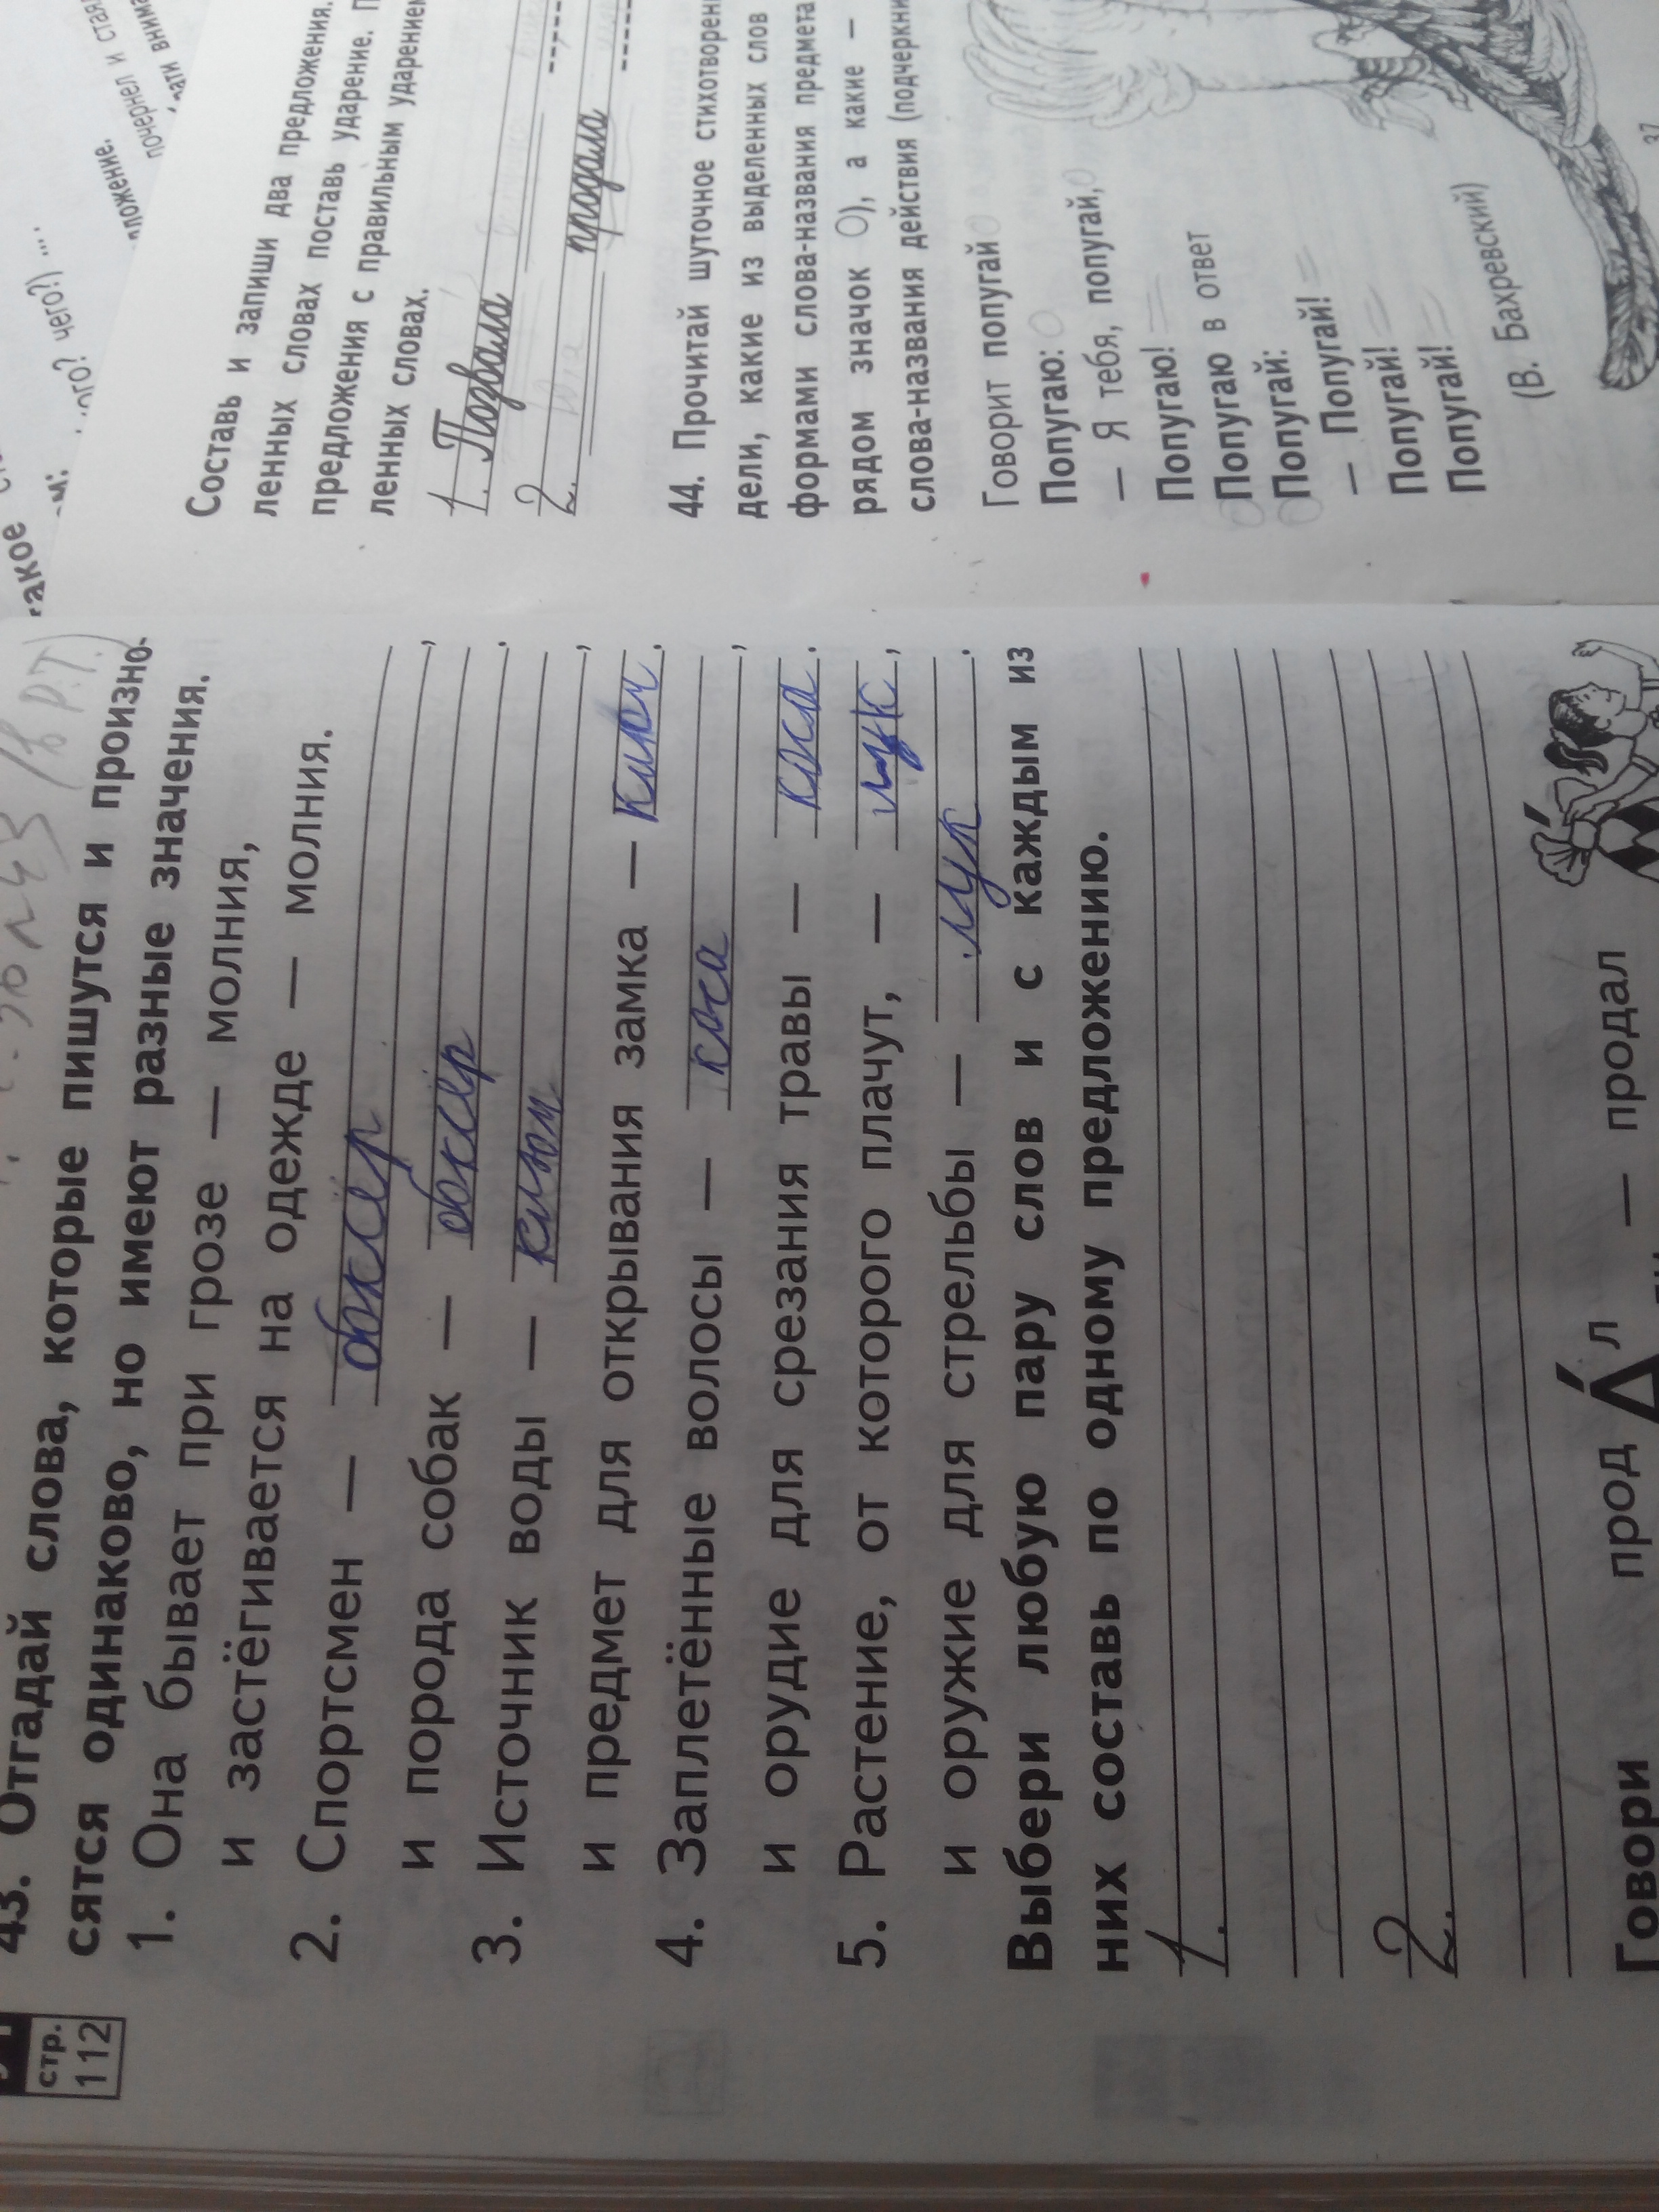 стр.
112
43. Отгадай слова, которые пишутся и произно-
сятся одинаково, но имеют разные значения.
1. Она бывает при грозе — молния,
и застёгивается на одежде — молния.
2. Спортсмен — боксёр
и порода собак — боксёр,
3. Источник воды — ключ.
и предмет для открывания замка — ключ.
4. Заплетённые волосы — коса,
и орудие для срезания травы — коса.
5. Растение, от которого плачут, — лук,
и оружие для стрельбы — лук.
Выбери любую пару слов и с каждым из
них составь по одному предложению.
1.
2.
Говори продал — продал
Составь и запиши два предложения.
ленных словах поставь ударение.
предложения с правильным ударением
ленных словах.
1. Позвала
2. продала
44. Прочитай шуточное стихотворен
дели, какие из выделенных слов
формами слова-названия предмета
рядом значок О), а какие —
слова-названия действия (подчеркни
Говорит попугай
Попугаю:
— Я тебя, попугай,
Попугаю!
Попугаю в ответ
Попугай:
— Попугай!
Попугай!
Попугай!
(В. Бахревский)
37